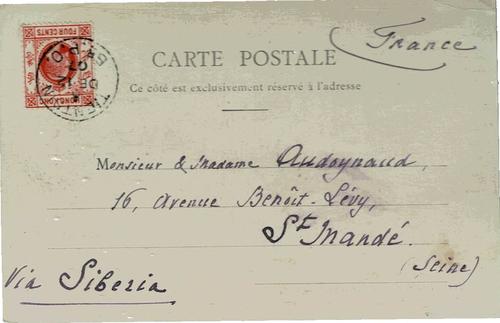 FOUR CENTS
HONGKONG
TIENTSIN
B.P.O.
DE
CARTE POSTALE
France
Ce côté est exclusivement réservé à l'adresse
Monsieur & Madame Audoynaud,
16, Avenue Benoît-Lévy,
St Mandé.
(Seine)
Via Siberia